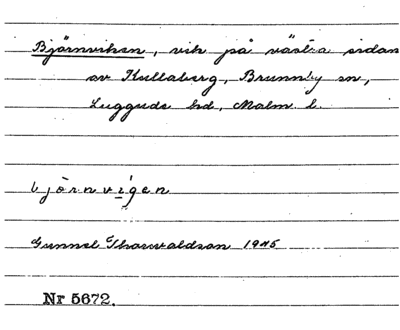 Björnviken, vik på västra sidan
av Kullaberg, Brunnby sn,
Luggude hd, Malm. l.
bjö̀rnvígen
Gunnel Thorwaldson 1945
Nr 5672.